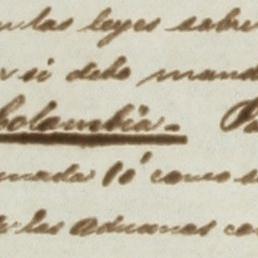 las leyes sobre
si debo mand
Colombia.
nada 10 como
las aduanas co